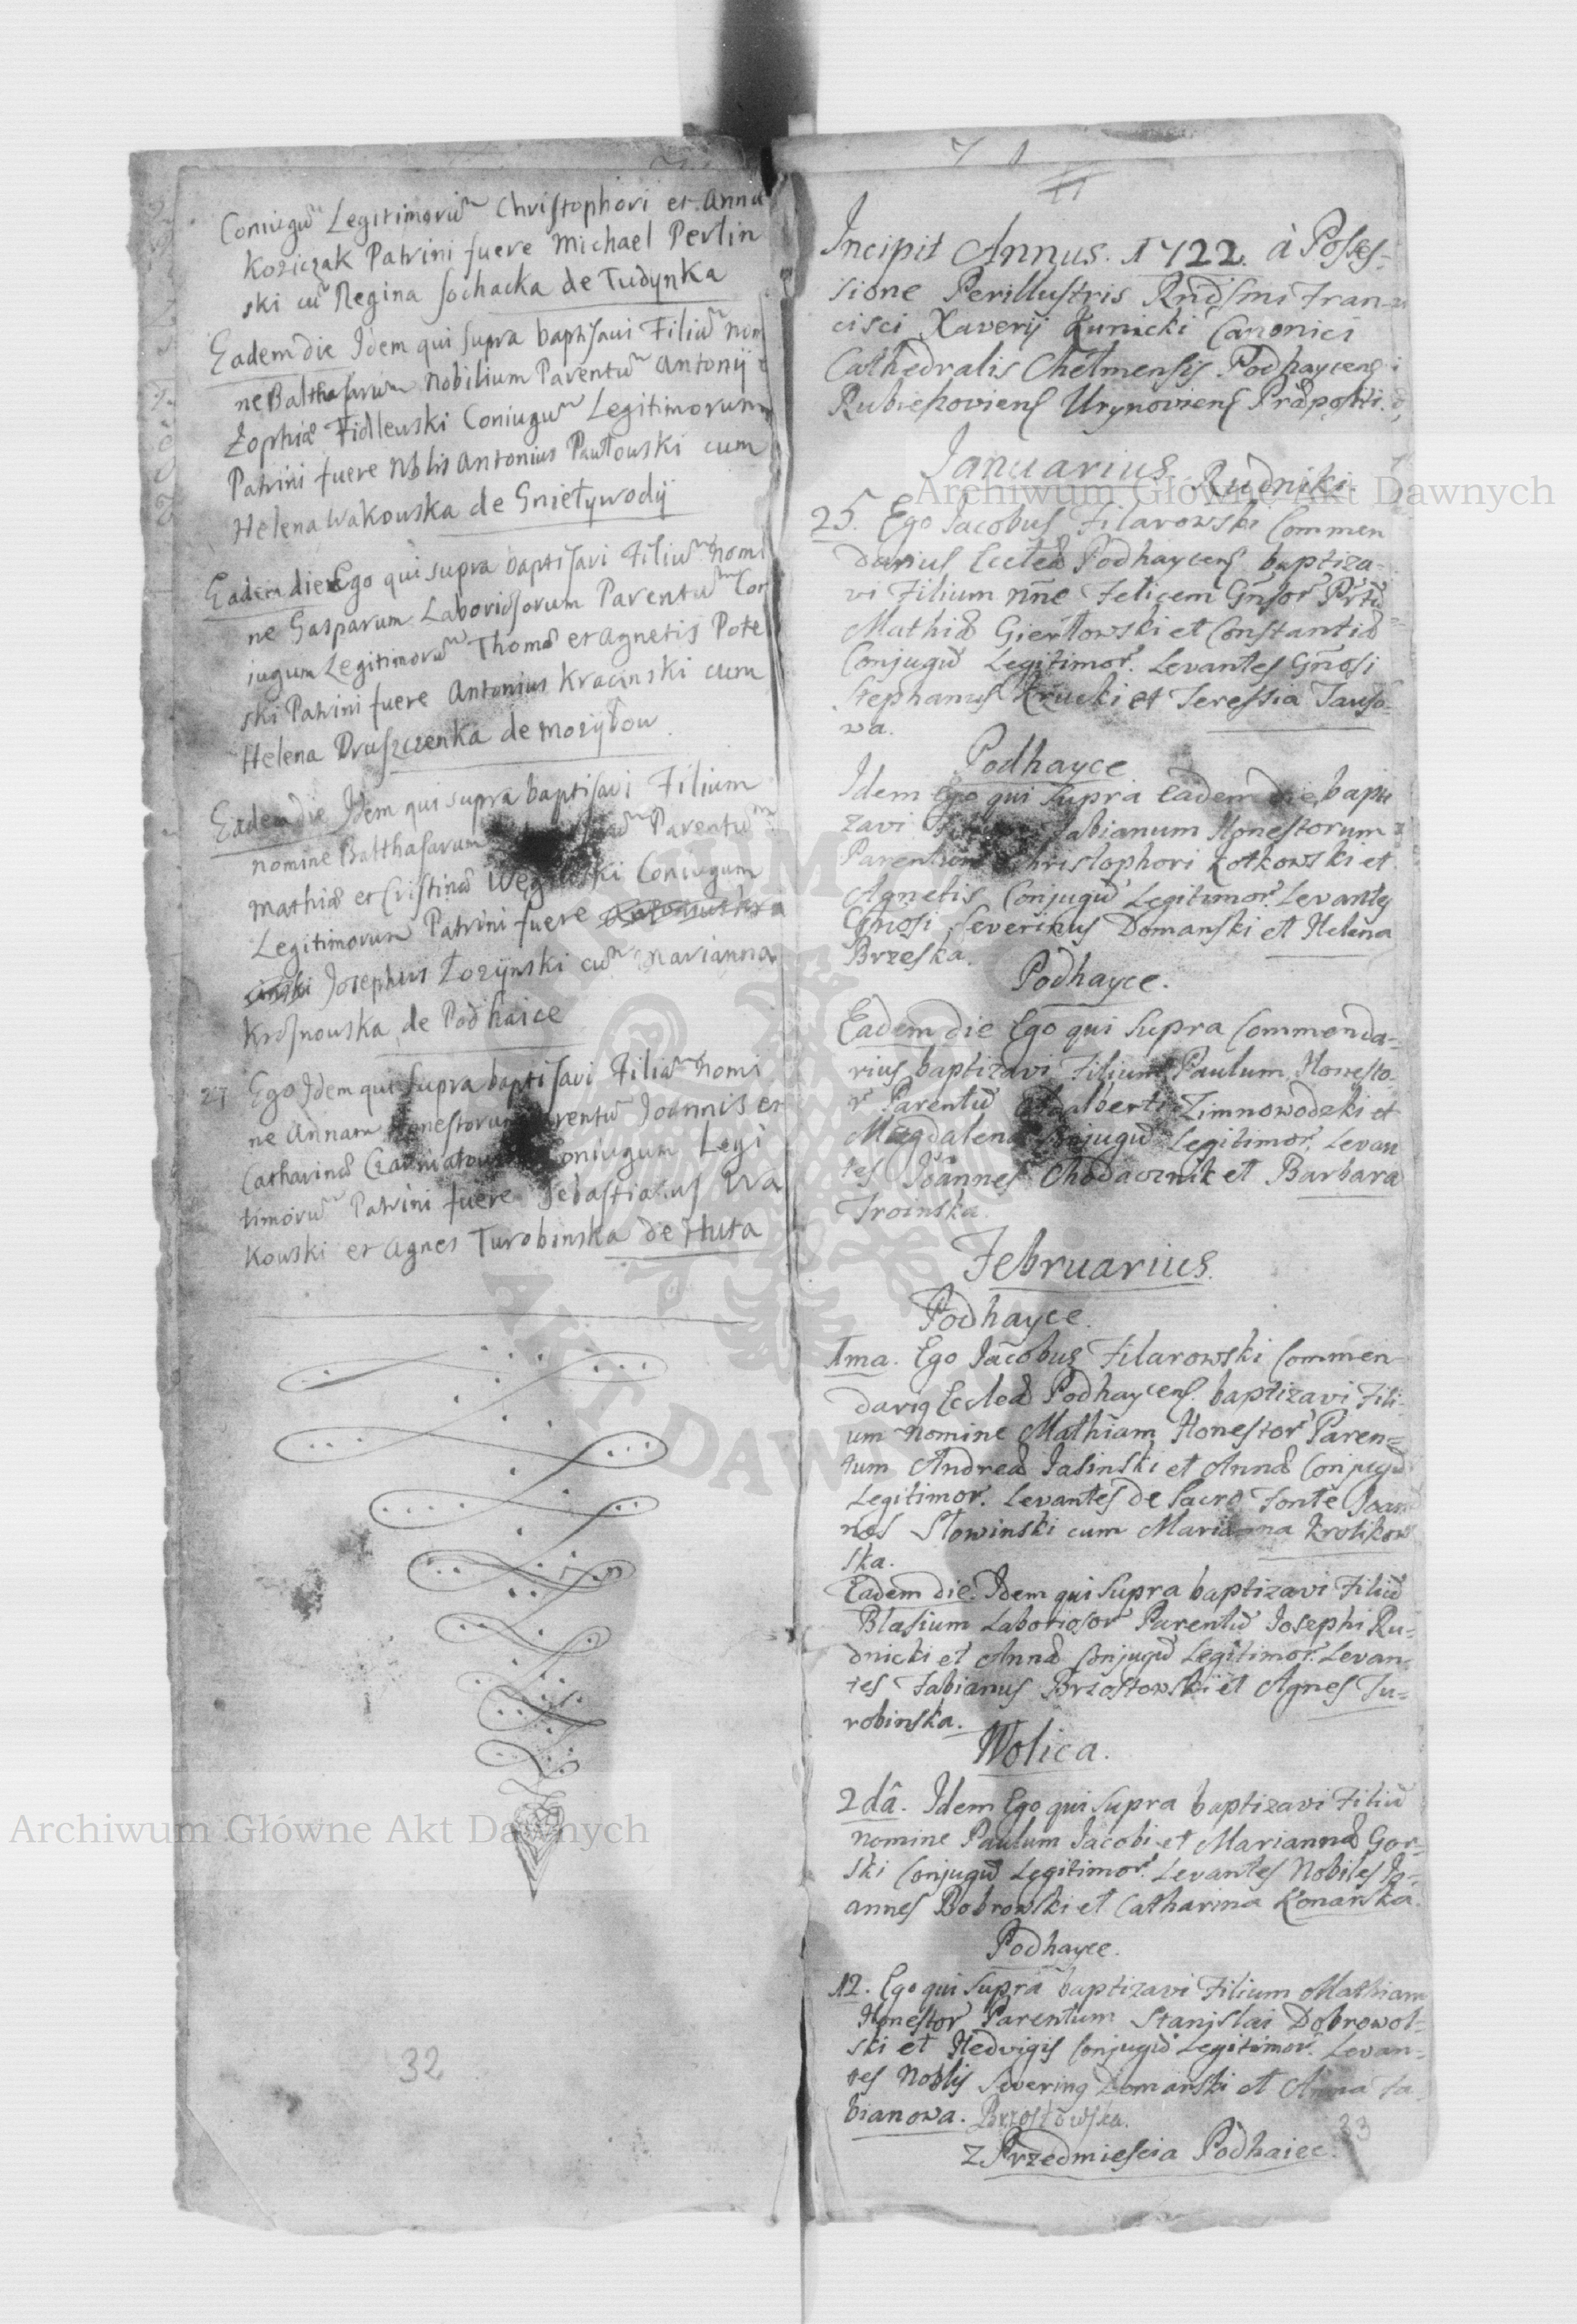 Coniugũ Legitimorũ Christophori et Annæ
Koziczak Patrini fuere Michael Perlin
ski cũ Regina Sochacka de Tudynka
Eadem die Idem qui supra baptisavi Filiũ nomi
ne Balthasarum Nobilium Parentũ Antonij et
Zophiæ Fidlewski Coniugũ Legitimorum
Patrini fuere Nblis Antonius Pawłowski cum
Helena Wakowska de Gnieływodÿ
Eadem die Ego qui supra baptisavi Filiũ nomi
ne Gasparum Laboriosorum Parentũ Con
jugum Legitimorũ Thomæ et Agnetis Pote
ski Patrini fuere Antonius Kracinski cum
Helena Druszczenka de Mozyłow
Eadem die Idem qui supra baptisavi Filium
nomine Balthasarum Parentũ
Mathiæ et Cristinæ Coniugum
Legitimorum Patrini fuere
Josephus Łozÿnski cũ Marianna
Krosnowska de Podhaice
27 Ego Idem qui supra baptisavi Filiã nomi
ne Annam Honestorum Parentũ Joannis et
Catharinæ Coniugum Legi
timorũ Patrini fuere Sebastianus Wa
kowski et Agnes Turobinska de Huta
32
71
Incipit Annus. 1722. à Posses=
sione Perillustris Rndsmi Fran=
cisci Xaverij Kunicki Canonici
Cathedralis Chełmensis Podhaycens
Rubieszoviens Urynoviens Præpositi.
Januarius. Rudniki.
25. Ego Jacobus Filarowski Commen
darius Eccleæ Podhaycens baptiza=
vi Filium nñe Felicem Gñsor Prtũ
Mathiæ Gierłowski et Constantiæ
Conjugũ Legitimor. Levantes Gñosi
Stephanus Krucki et Teressia Tauso=
wa.
Podhayce
Idem Ego qui supra Eadem die bapti
zavi Fabianum Honestorum
Parentum Christophori Kotkowski et
Agnetis Conjugũ Legitimor. Levantes
Gñosi Severinus Domanski et Helena
Brzeska.
Podhayce.
Eadem die Ego qui supra Commenda=
rius baptizavi Filium Paulum Honesto=
r Parentũ Adalberti Zimnowodzki et
Magdalenæ Conjugũ Legitimor. Levan
tes Joannes Chodacznik et Barbara
Troinska.
Februarius.
Podhayce.
1ma. Ego Jacobus Filarowski Commen
dariq Eccleæ Podhaycens. baptizavi Fili=
um nomine Mathiam Honestor Paren=
tum Andreæ Jasinski et Annæ Conjugũ
Legitimor. Levantes de Sacro Fonte Joan
nes Słowinski cum Marianna Krolikow
ska.
Eadem die. Idem qui supra baptizavi Filiũ
Blasium Laboriosor Parentũ Josephi Ru=
dnicki et Annæ Conjugũ Legitimor. Levan=
tes Fabianus Brzostowski et Agnes Tu=
robinska.
Wolica.
2dâ. Idem Ego qui supra baptizavi Filiũ
nomine Paulum Jacobi et Mariannæ Gor=
ski Conjugũ Legitimor. Levantes Nobiles Jo=
annes Bobrowski et Catharina Konarska.
Podhayce.
12. Ego qui supra baptizavi Filium Mathiam
Honestor Parentum Stanislai Dobrowol=
ski et Hedvigis Conjugũ Legitimor. Levan=
tes Noblis Severinq Domanski et Anna Fa
bianowa. Brzostowska.
33
z Przedmiescia Podhaiec.
Archiwum Główne Akt Dawnych
Archiwum Główne Akt Dawnych
ARCHIWUM GŁÓWNE
AKT DAWNYCH